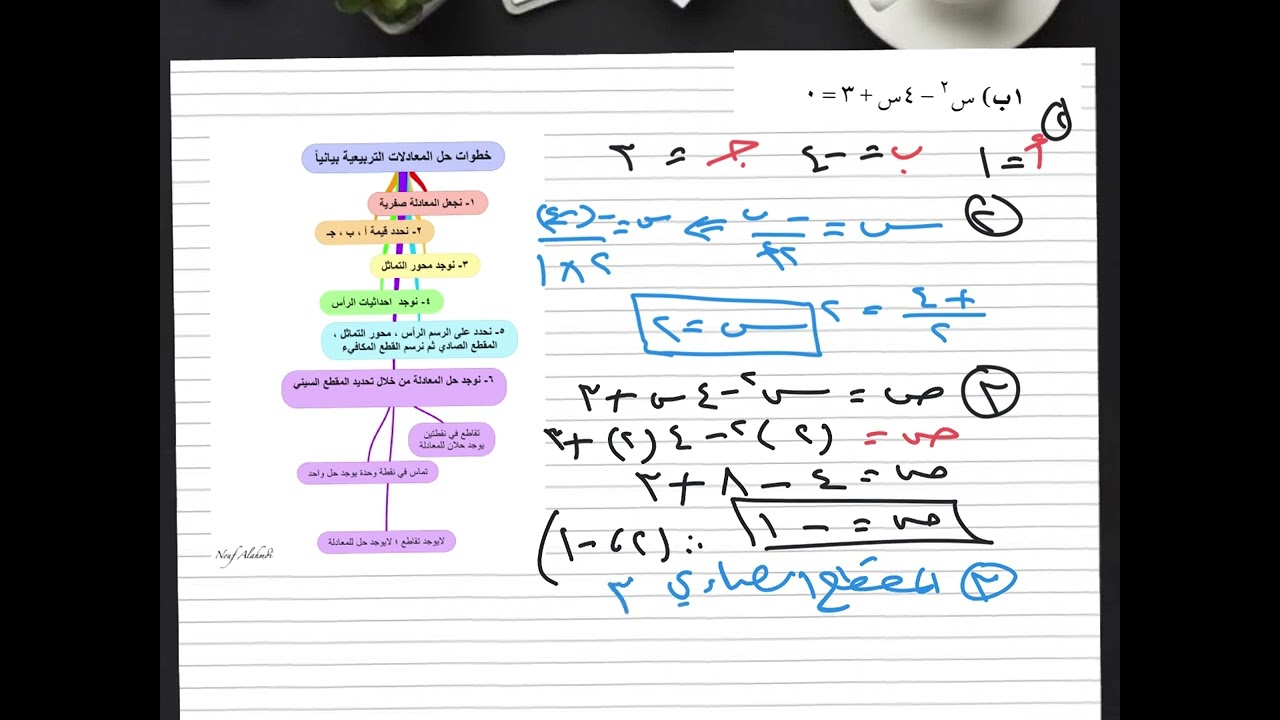 ١ب) س٢ – ٤س + ٣ = ٠
أ = ١ ب = -٤ جـ = ٣
٢ س = -ب / ٢أ ⇐ س = -(-٤) / ٢×١
+٤ / ٢ = ٢ س = ٢
٣ ص = س٢ - ٤س + ٣
ص = (٢)٢ - ٤(٢) + ٣
ص = ٤ - ٨ + ٣
ص = -١ ∴ (٢، -١)
المقطع الصادي ٣
خطوات حل المعادلات التربيعية بيانياً
١- نجعل المعادلة صفرية
٢- نحدد قيمة أ ، ب ، جـ
٣- نوجد محور التماثل
٤- نوجد احداثيات الرأس
٥- نحدد على الرسم الرأس ، محور التماثل ،
المقطع الصادي ثم نرسم القطع المكافيء
٦- نوجد حل المعادلة من خلال تحديد المقطع السيني
تقاطع في نقطتين
يوجد حلان للمعادلة
تماس في نقطة وحدة يوجد حل واحد
لايوجد تقاطع ؛ لايوجد حل للمعادلة
Nouf Alahmdi